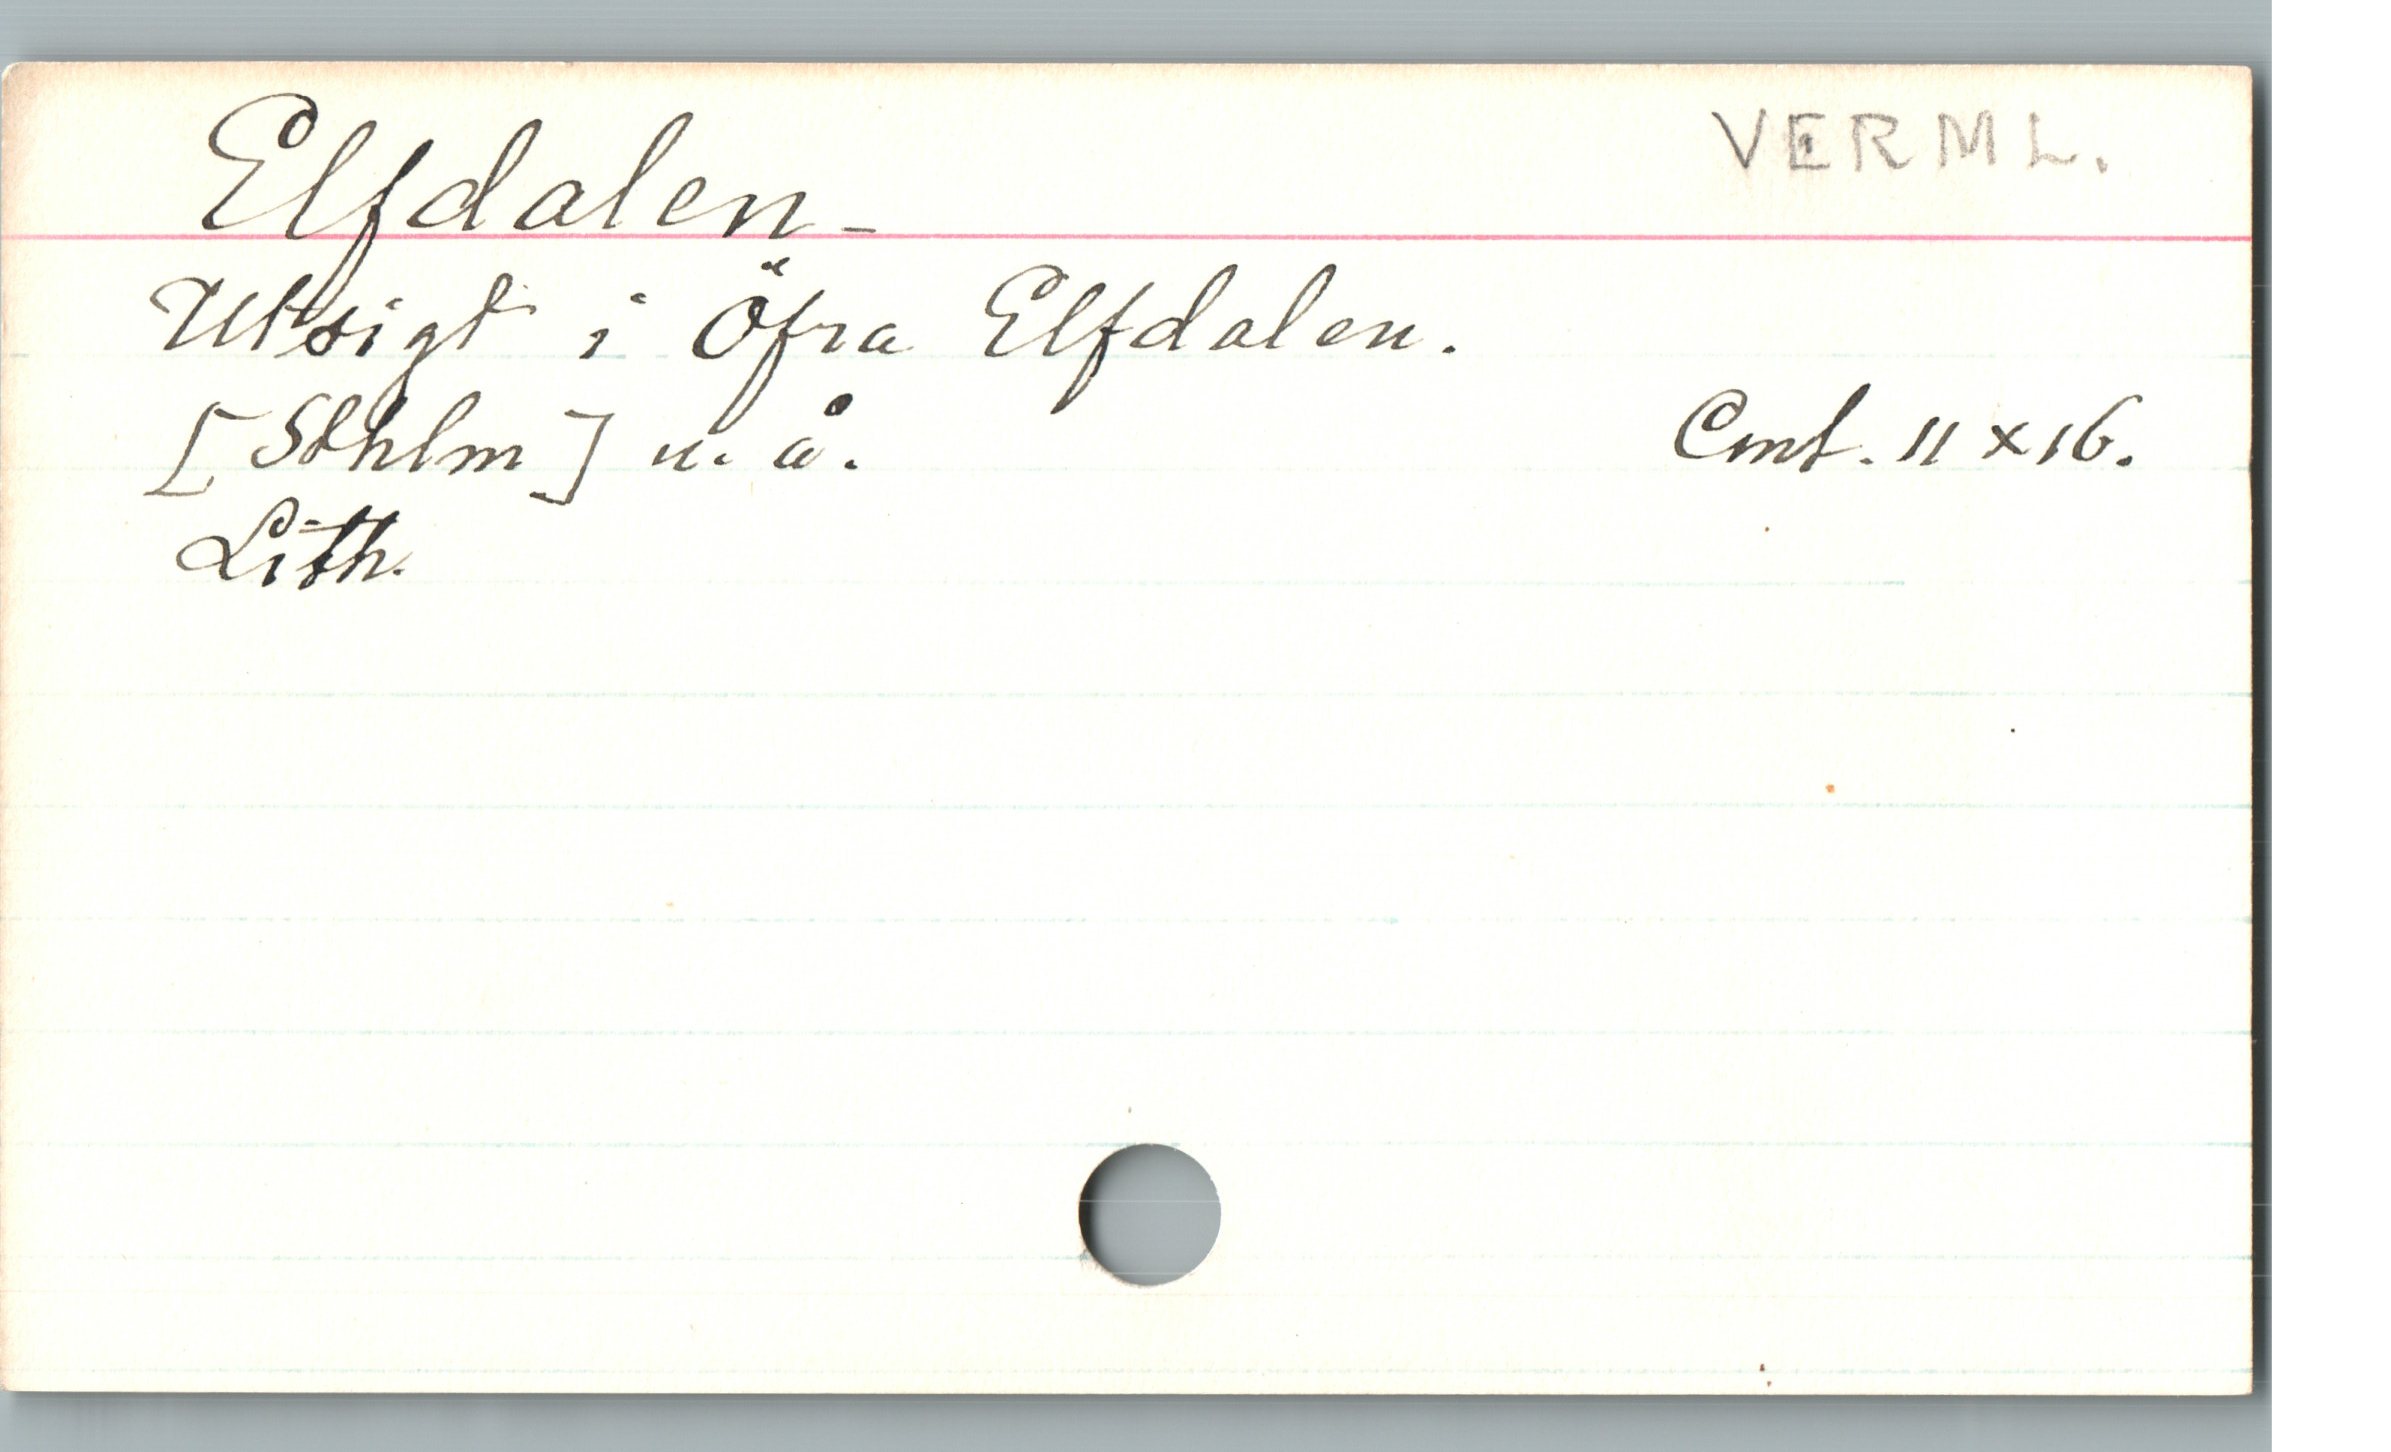 Elfdalen_ VERML.
Utsigt i Öfra Elfdalen.
[Sthlm] u. å. Cmt. 11 x 16.
Lith.